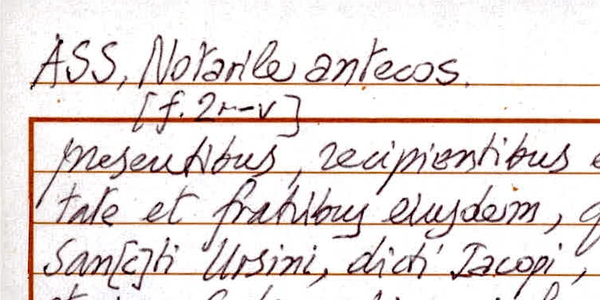 ASS, Notarile antecos.
[f. 2r-v]
presentibus, recipientibus e
tate et fratribus eiusdem, q
San[c]ti Ursini, dicti Iacopi,